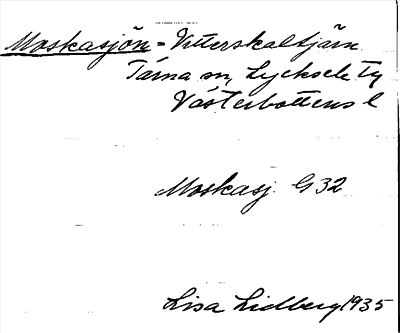 Moskasjön = Vitterskaltjärn
Tärna sn, Lycksele Tg
Västerbottens l
Moskasj. G 32
Lisa Lidberg 1935